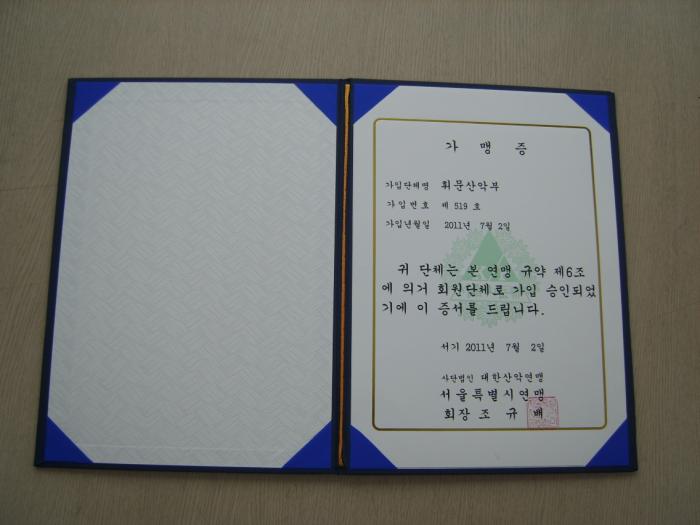 가 맹 증
가입단체명 휘문산악부
가입번호 제 519 호
가입년월일 2011년 7월 2일
귀 단체는 본 연맹 규약 제6조
에 의거 회원단체로 가입 승인되었
기에 이 증서를 드립니다.
서기 2011년 7월 2일
사단법인 대한산악연맹
서울특별시연맹
회장 조 규 배